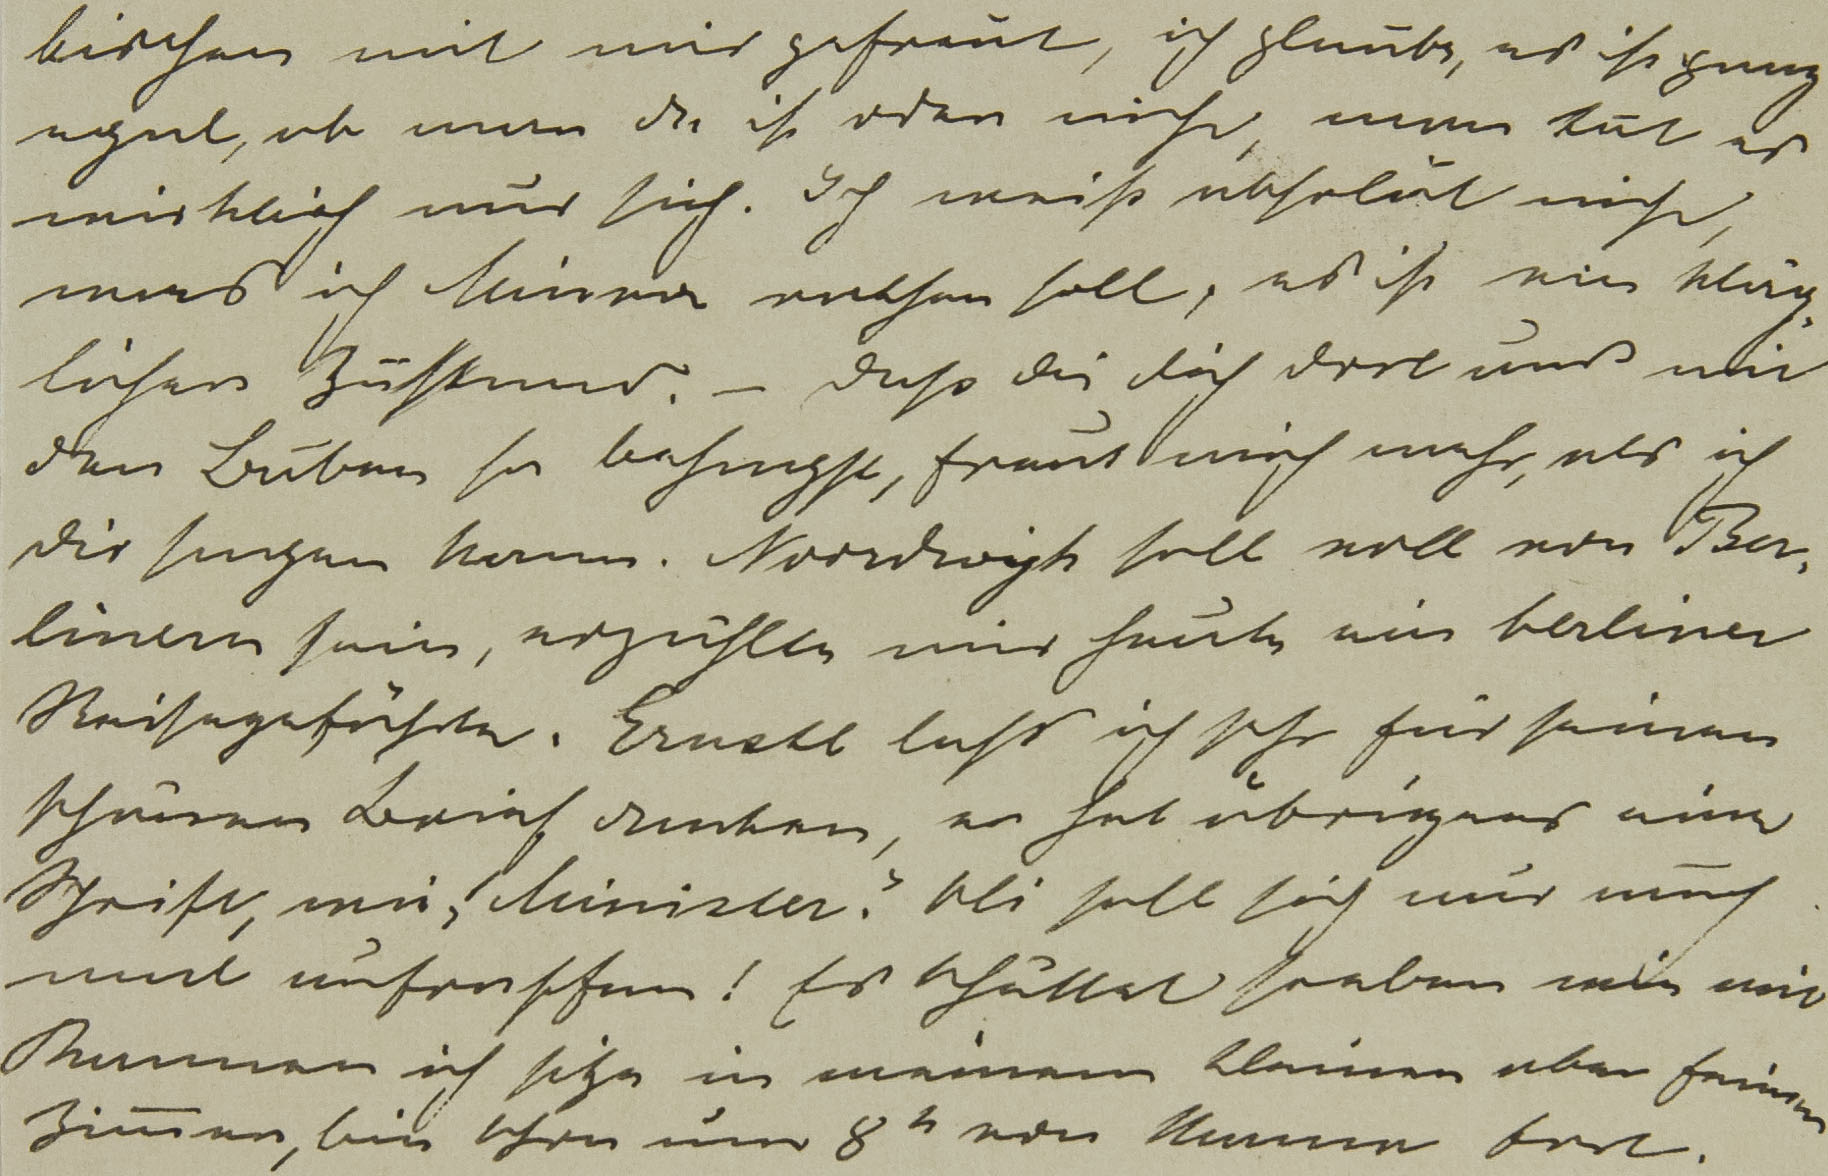 bischen mit mir gefreut, ich glaube, es ist ganz
egal, ob man da ist oder nicht, man tut es
wirklich nur sich. Ich weiß absolut nicht,
was ich Minna rathen soll, es ist ein kläg-
licher Zustand. – Dass du dich dort und mit
den Buben so behagst, freut mich mehr, als ich
dir sagen kann. Noordwijk soll voll von Ber-
linern sein, erzählte mir heute ein berliner
Reisegefährte. Ernstl lass ich sehr für seinen
schönen Brief danken, er hat übrigens eine
Schrift, wie „Minister“. Oli soll sich nur noch
mal aufraffen! Es schüttet soeben wie mit
Kannen ich sitze in meinem kleinen aber feinen
Zimmer, bin schon um 8h von Mama fort.